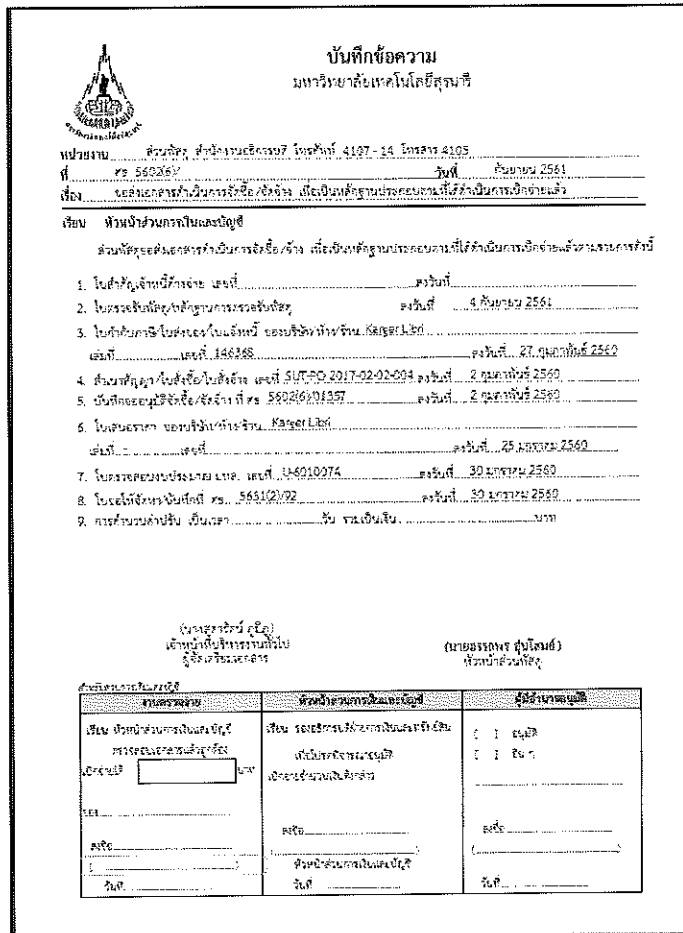 บันทึกข้อความ
มหาวิทยาลัยเทคโนโลยีสุรนารี
หน่วยงาน ส่วนพัสดุ สำนักงานอธิการบดี โทรศัพท์ 4107 - 14 โทรสาร 4105
ที่ ศธ 5602(6)/ วันที่ กันยายน 2561
เรื่อง ขอส่งเอกสารดำเนินการจัดซื้อ/จัดจ้าง เพื่อเป็นหลักฐานประกอบตามที่ได้ดำเนินการเบิกจ่ายแล้ว
เรียน หัวหน้าส่วนการเงินและบัญชี
ส่วนพัสดุขอส่งเอกสารดำเนินการจัดซื้อ/จ้าง เพื่อเป็นหลักฐานประกอบตามที่ได้ดำเนินการเบิกจ่ายแล้วตามรายการดังนี้
1. ใบสำคัญเจ้าหนี้ค้างจ่าย เลขที่ ลงวันที่
2. ใบตรวจรับพัสดุ/หลักฐานการตรวจรับพัสดุ ลงวันที่ 4 กันยายน 2561
3. ใบกำกับภาษี/ใบส่งของ/ใบแจ้งหนี้ ของบริษัท/ห้าง/ร้าน Karger Libri
เล่มที่ เลขที่ 146368 ลงวันที่ 27 กุมภาพันธ์ 2560
4. สำเนาสัญญา/ใบสั่งซื้อ/ใบสั่งจ้าง เลขที่ SUT-PO 2017-02-02-004 ลงวันที่ 2 กุมภาพันธ์ 2560
5. บันทึกขออนุมัติจัดซื้อ/จัดจ้าง ที่ ศธ 5602(6)/01357 ลงวันที่ 2 กุมภาพันธ์ 2560
6. ใบเสนอราคา ของบริษัท/ห้าง/ร้าน Karger Libri
เล่มที่ - เลขที่ ลงวันที่ 25 มกราคม 2560
7. ใบตรวจสอบงบประมาณ มทส. เลขที่ U-6010074 ลงวันที่ 30 มกราคม 2560
8. ใบขอให้จัดหา/บันทึกที่ ศธ. 5631(2)/92 ลงวันที่ 30 มกราคม 2560
9. การคำนวณค่าปรับ เป็นเวลา วัน รวมเป็นเงิน บาท
เจ้าหน้าที่บริหารงานทั่วไป
ผู้จัดเตรียมเอกสาร
(นายอรรถพร สุ่นโสมย์)
หัวหน้าส่วนพัสดุ
สำหรับส่วนการเงินและบัญชี
งานตรวจจ่าย หัวหน้าส่วนการเงินและบัญชี ผู้มีอำนาจอนุมัติ
เรียน หัวหน้าส่วนการเงินและบัญชี
ตรวจสอบเอกสารแล้วถูกต้อง
เบิกจ่ายได้ บาท
ลงชื่อ
( )
วันที่
เรียน รองอธิการบดีฝ่ายการเงินและทรัพย์สิน
เพื่อโปรดพิจารณาอนุมัติ
เบิกจ่ายจำนวนเงินดังกล่าว
ลงชื่อ
( )
หัวหน้าส่วนการเงินและบัญชี
วันที่
[ ] อนุมัติ
[ ] อื่น ๆ
ลงชื่อ
( )
วันที่